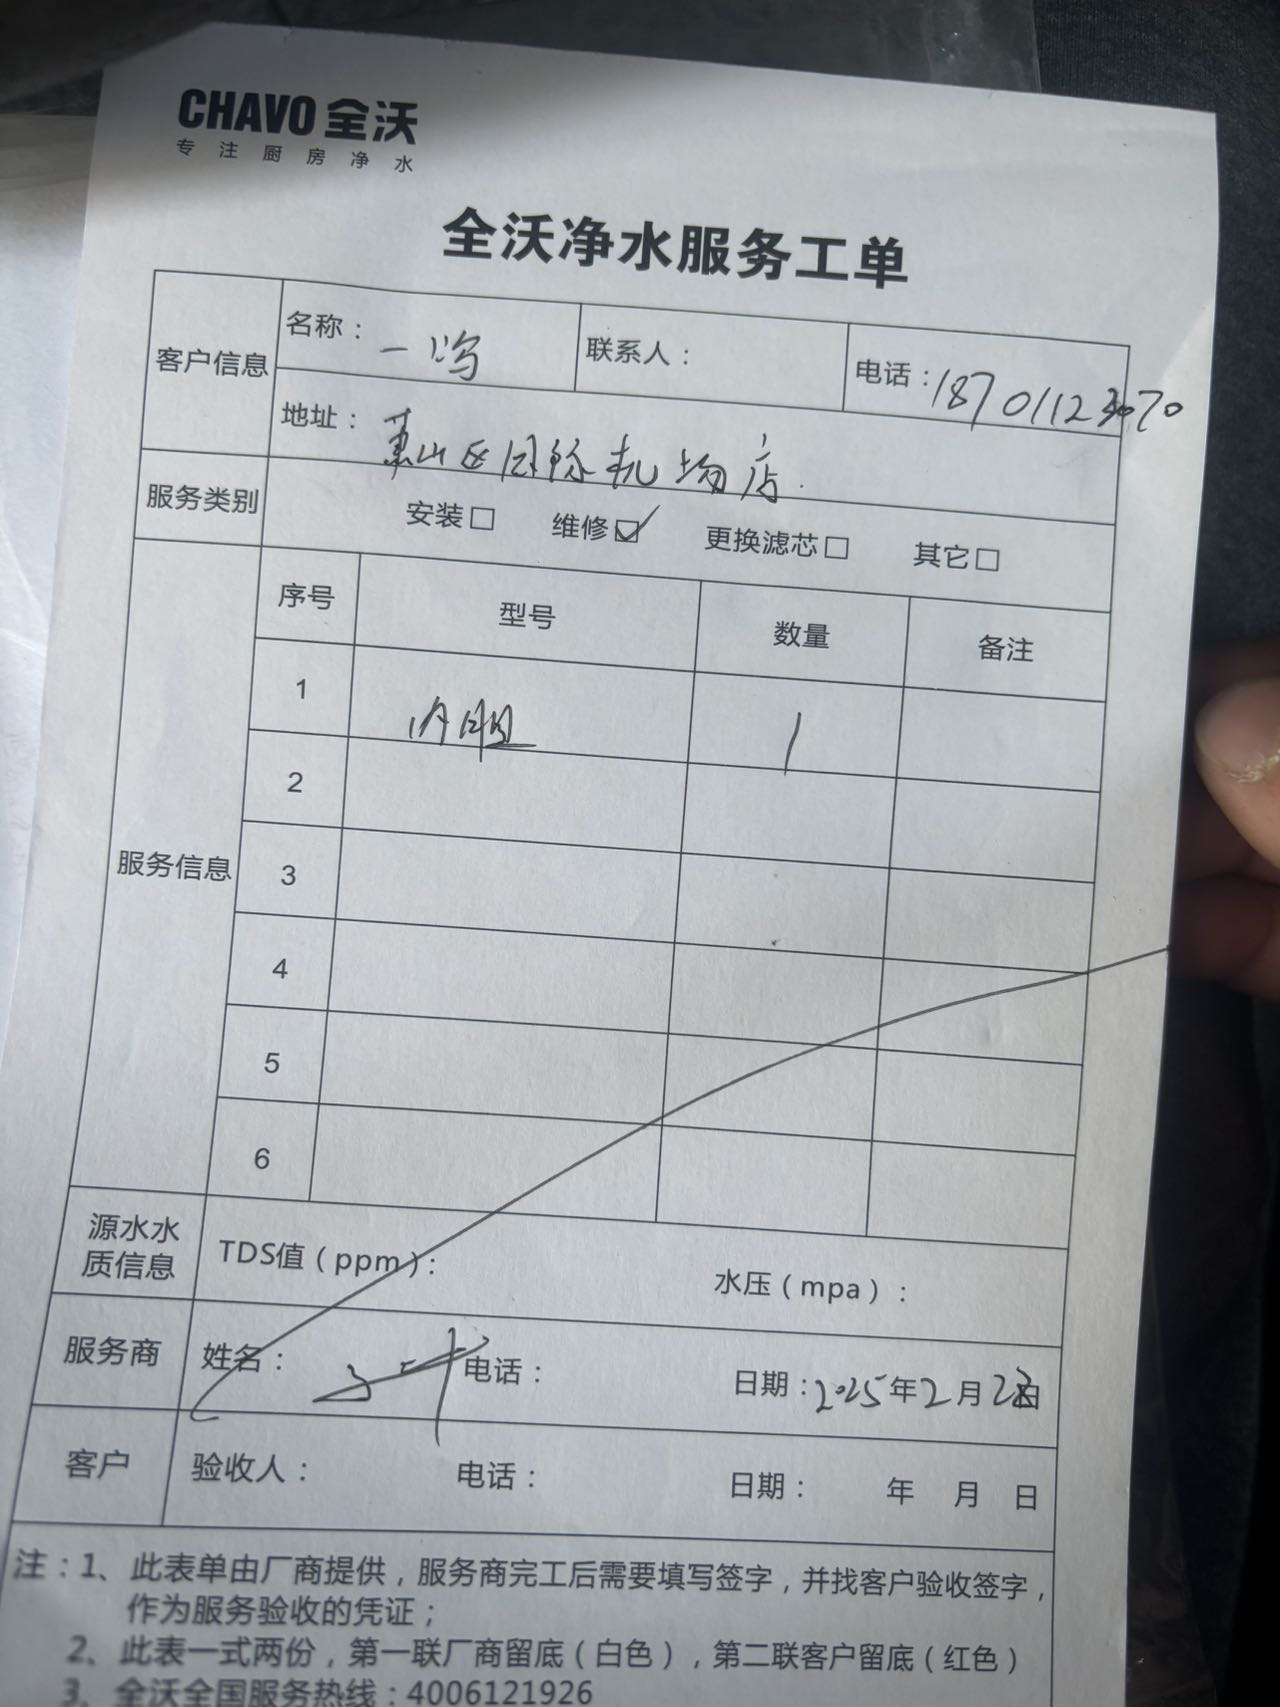 CHAVO 全沃
专注厨房净水
全沃净水服务工单
客户信息
名称：一鸣
联系人：
电话：
地址：萧山区国际机场店
服务类别
安装□ 维修☑ 更换滤芯□ 其它□
服务信息
序号 型号 数量 备注
1 内胆 1
2
3
4
5
6
源水水质信息
TDS值（ppm）：
水压（mpa）：
服务商
姓名： 电话： 日期：2025年2月 日
客户
验收人： 电话： 日期： 年 月 日
注：1、此表单由厂商提供，服务商完工后需要填写签字，并找客户验收签字，
作为服务验收的凭证；
2、此表一式两份，第一联厂商留底（白色），第二联客户留底（红色）
3、全沃全国服务热线：4006121926